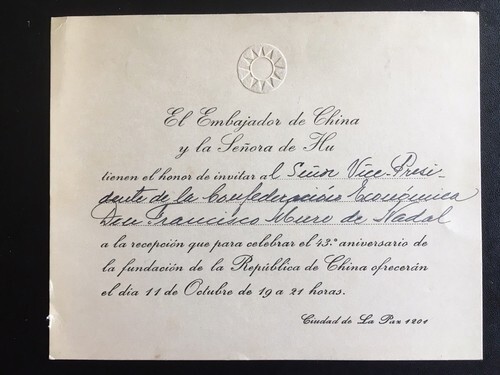 El Embajador de China
y la Señora de Hu
tienen el honor de invitar al Señor Vice-Presi-
dente de la Confederación Económica
Don Francisco Muro de Nadal
a la recepción que para celebrar el 43.º aniversario de
la fundación de la República de China ofrecerán
el día 11 de Octubre de 19 a 21 horas.
Ciudad de La Paz 1201